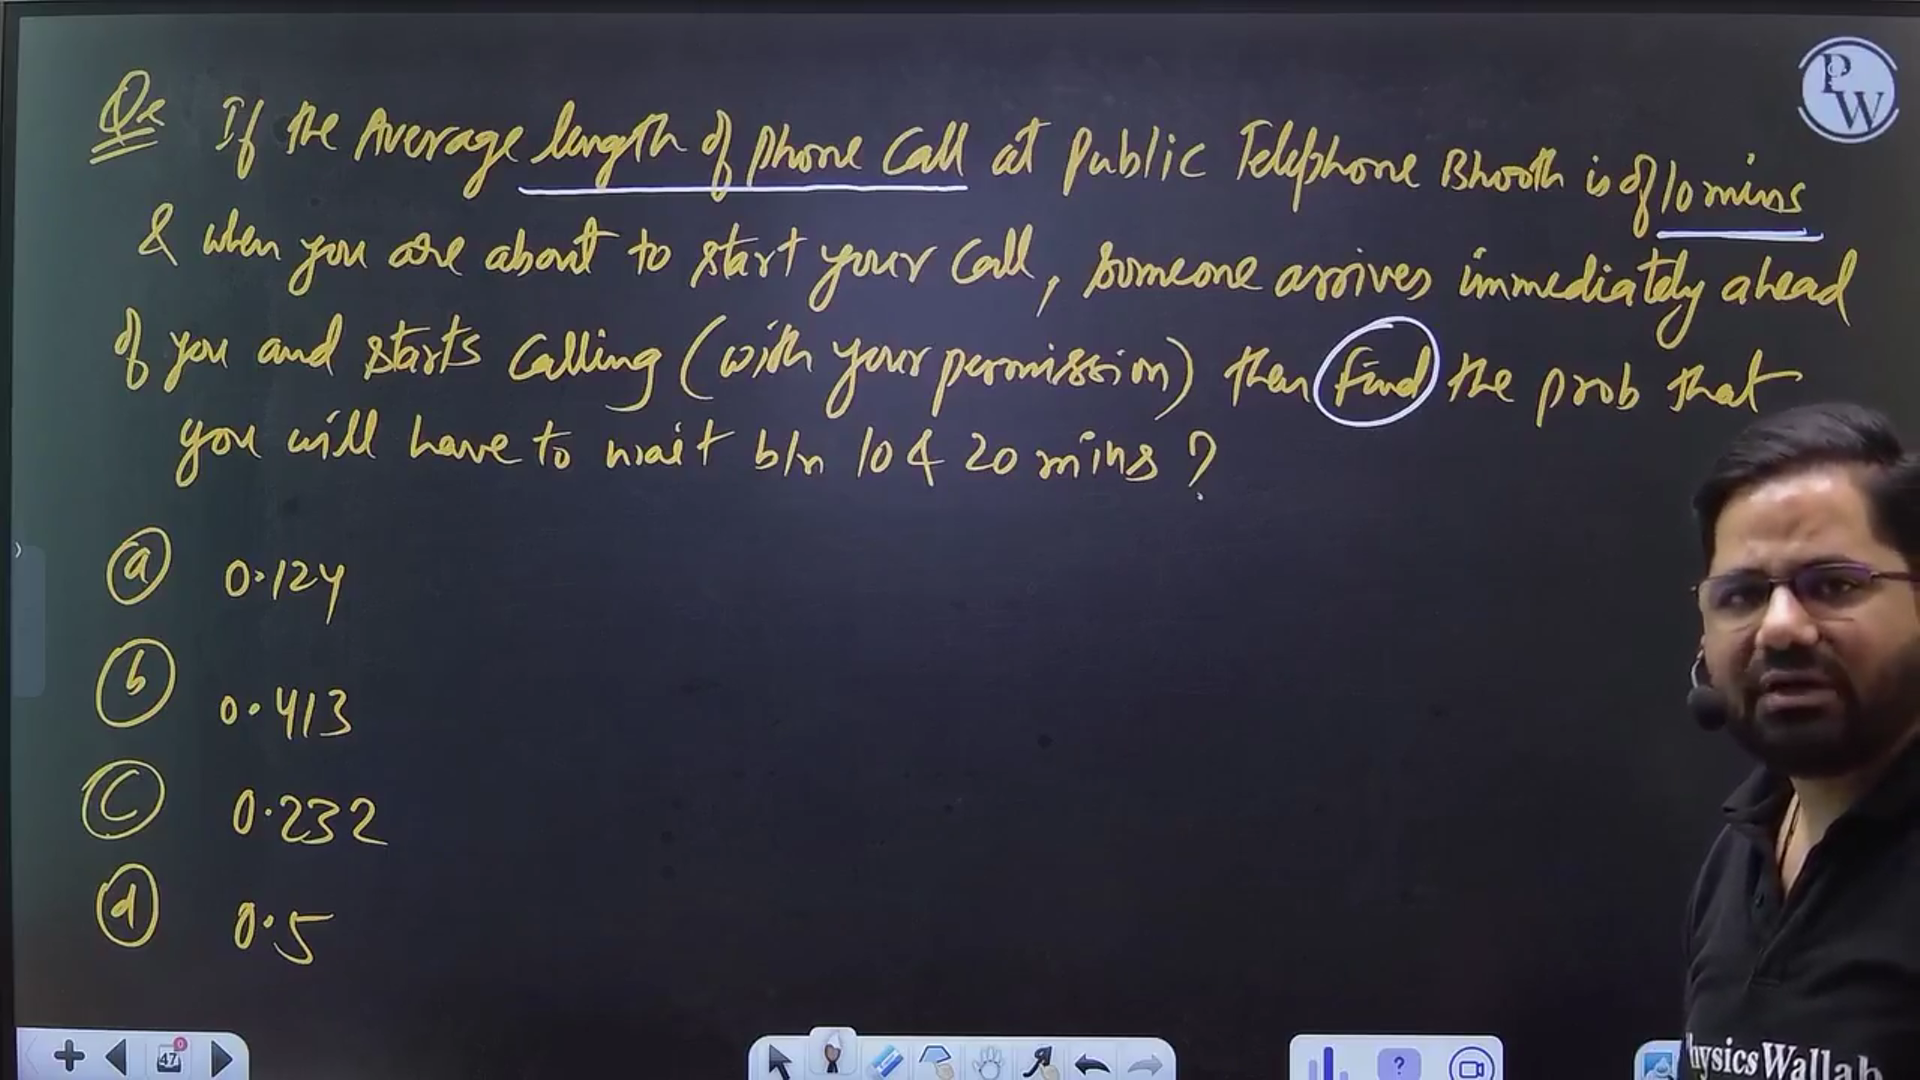 PW
Qs If the Average length of phone Call at Public Telephone Bhooth is of 10 mins
& when you are about to start your Call, someone arrives immediately ahead
of you and starts Calling (with your permission) then find the prob that
you will have to wait b/n 10 & 20 mins ?
(a) 0.124
(b) 0.413
(c) 0.232
(d) 0.5
47
0
?
hysicsWallah